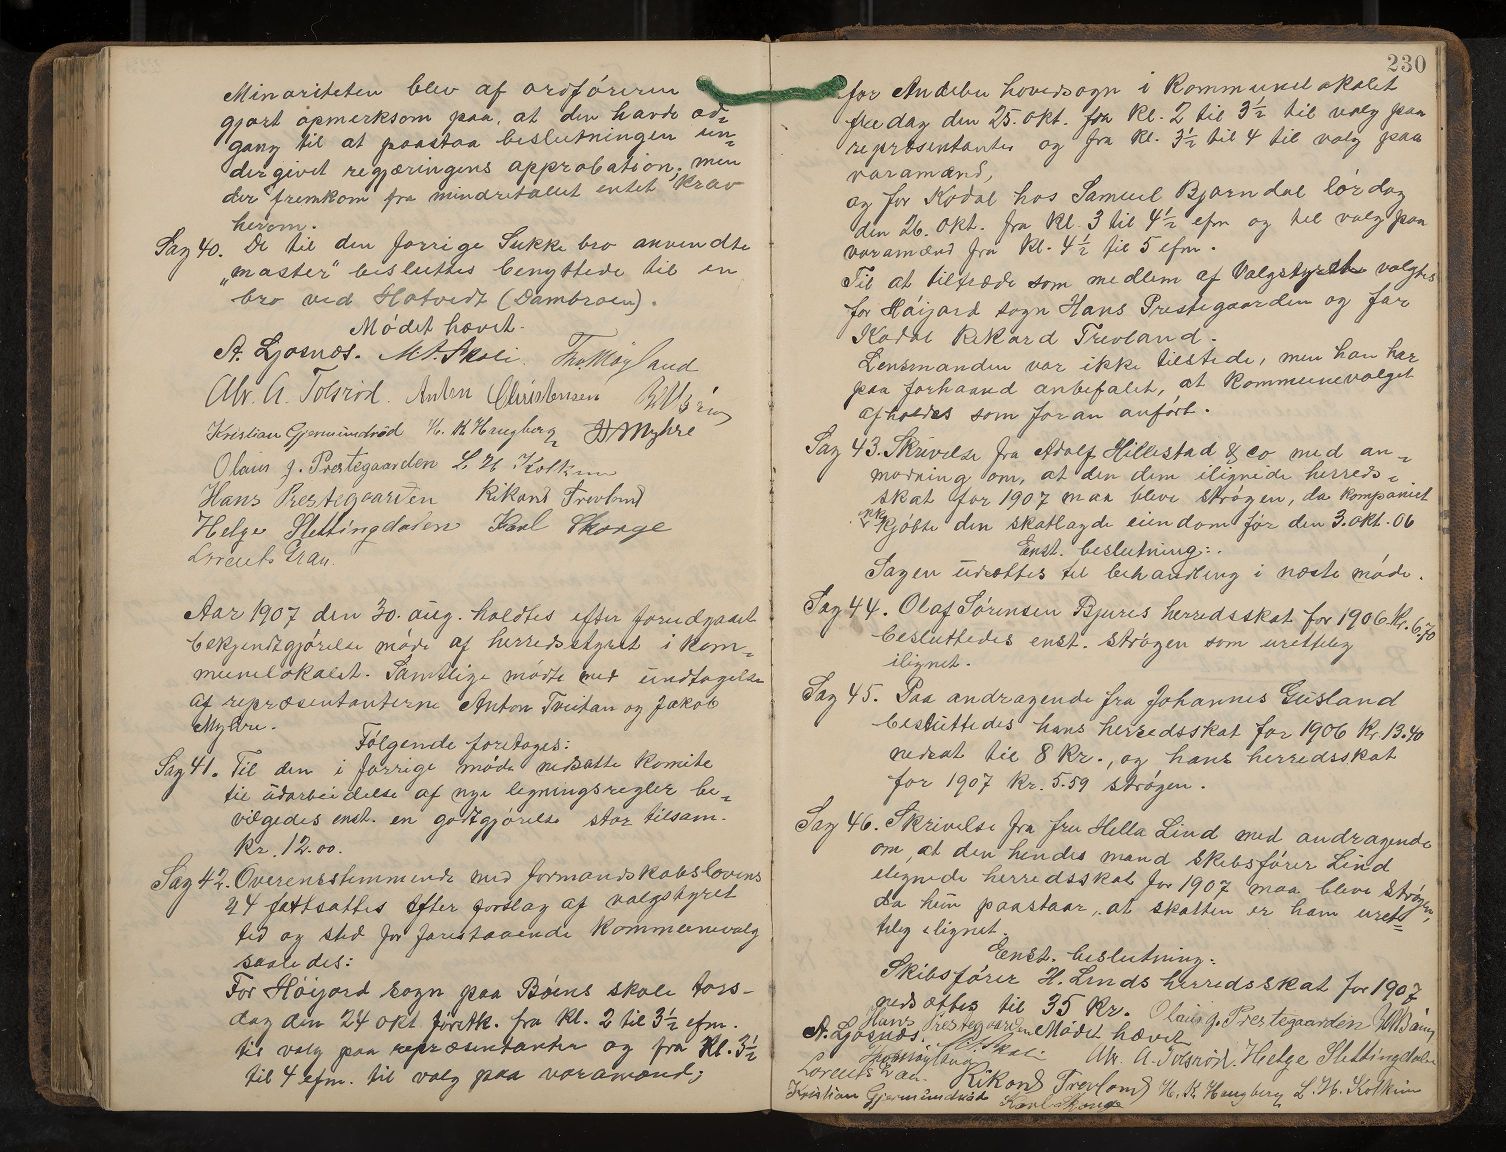 Minoriteten blev af ordföreren
gjort opmerksom paa, at den havde ad-
gang til at paastaa beslutningen un-
dergivet regjæringens approbation, men
der fremkom fra mindretallet intet krav
herom.
Sag 40. De til den forrige Sukke bro anvendte
"master" besluttes benyttede til en
bro ved Hotvedt (Dambroen).
Mödet hævet.
A. Ljosnæs. M. A. Skoli. Tho. Möyland
Alv. A. Tolsröd. Anton Christensen
Kristian Gjermundröd H. K. Haugberg Myhre
Olaus J. Prestegaarden L. H. Kolkinn
Hans Prestegaarden Rikard Trevland
Helge Slettingdalen Karl Skorge
Lorents Grau.
Aar 1907 den 30. aug. holdtes efter forudgaaet
bekjendtgjörelse möde af herredsstyret i kom-
munelokalet. Samtlige mödte med undtagelse
af repræsentanterne Anton Tveitan og Jakob
Myhre.
Fölgende foretoges:
Sag 41. Til den i forrige möde nedsatte komite
til udarbeidelse af nye legningsregler be-
vilgedes enst. en godtgjörelse stor tilsam.
kr. 12.00.
Sag 42. Overensstemmende med formandskabslovens
§ 24 fastsattes efter forslag af valgstyret
tid og sted for forestaaende kommunevalg
saaledes:
For Höijord sogn paa Böens skole tors-
dag den 24 okt. förstk. fra kl. 2 til 3½ efm.
til valg paa repræsentanter og fra kl. 3½
til 4 efm. til valg paa varamænd;
230
for Andebu hovedsogn i kommunelokalet
fredag den 25. okt. fra kl. 2 til 3½ til valg paa
repræsentanter og fra kl. 3½ til 4 til valg paa
varamænd,
og for Kodal hos Samuel Bjørndal lördag
den 26. okt. fra kl. 3 til 4½ efm og til valg paa
varamænd fra kl. 4½ til 5 efm.
Til at tiltræde som medlem af Valgstyret valgtes
for Höijord sogn Hans Prestegaarden og for
Kodal Rikard Trevland.
Lensmanden var ikke tilstede, men han har
paa forhaand anbefalet, at kommunevalget
afholdes som foran anfört.
Sag 43. Skrivelse fra Adolf Hillestad & co med an-
modning om, at den dem ilignede herreds-
skat for 1907 maa blive strøgen, da kompaniet
ikke kjöbte den skatlagde eiendom för den 3. okt. 06
Enst. beslutning:
Sagen udsættes til behandling i næste möde.
Sag 44. Olaf Sørensen Bjures herredsskat for 1906 kr. 6.70
besluttedes enst. strögen som urettelig
ilignet.
Sag 45. Paa andragende fra Johannes Gusland
besluttedes hans herredsskat for 1906 kr 13.40
nedsat til 8 kr., og hans herredsskat
for 1907 kr. 5.59 strøgen.
Sag 46. Skrivelse fra fru Hella Lind med andragende
om, at den hendes mand skibsförer Lind
ilignede herredsskat for 1907 maa blive strögen,
da hun paastaar, at skatten er ham uret-
telig ilignet.
Enst. beslutning:
Skibsförer H. Linds herredsskat for 1907
nedsættes til 35 kr. Olaus J. Prestegaarden
Hans Prestegaarden Mödet hævet
A. Ljosnæs. Skoli Alv. A. Tolsröd. Helge Slettingdalen
Lorents Grau. Rikard Trevland H. K. Haugberg L. H. Kolkinn
Kristian Gjermundröd Karl Skorge